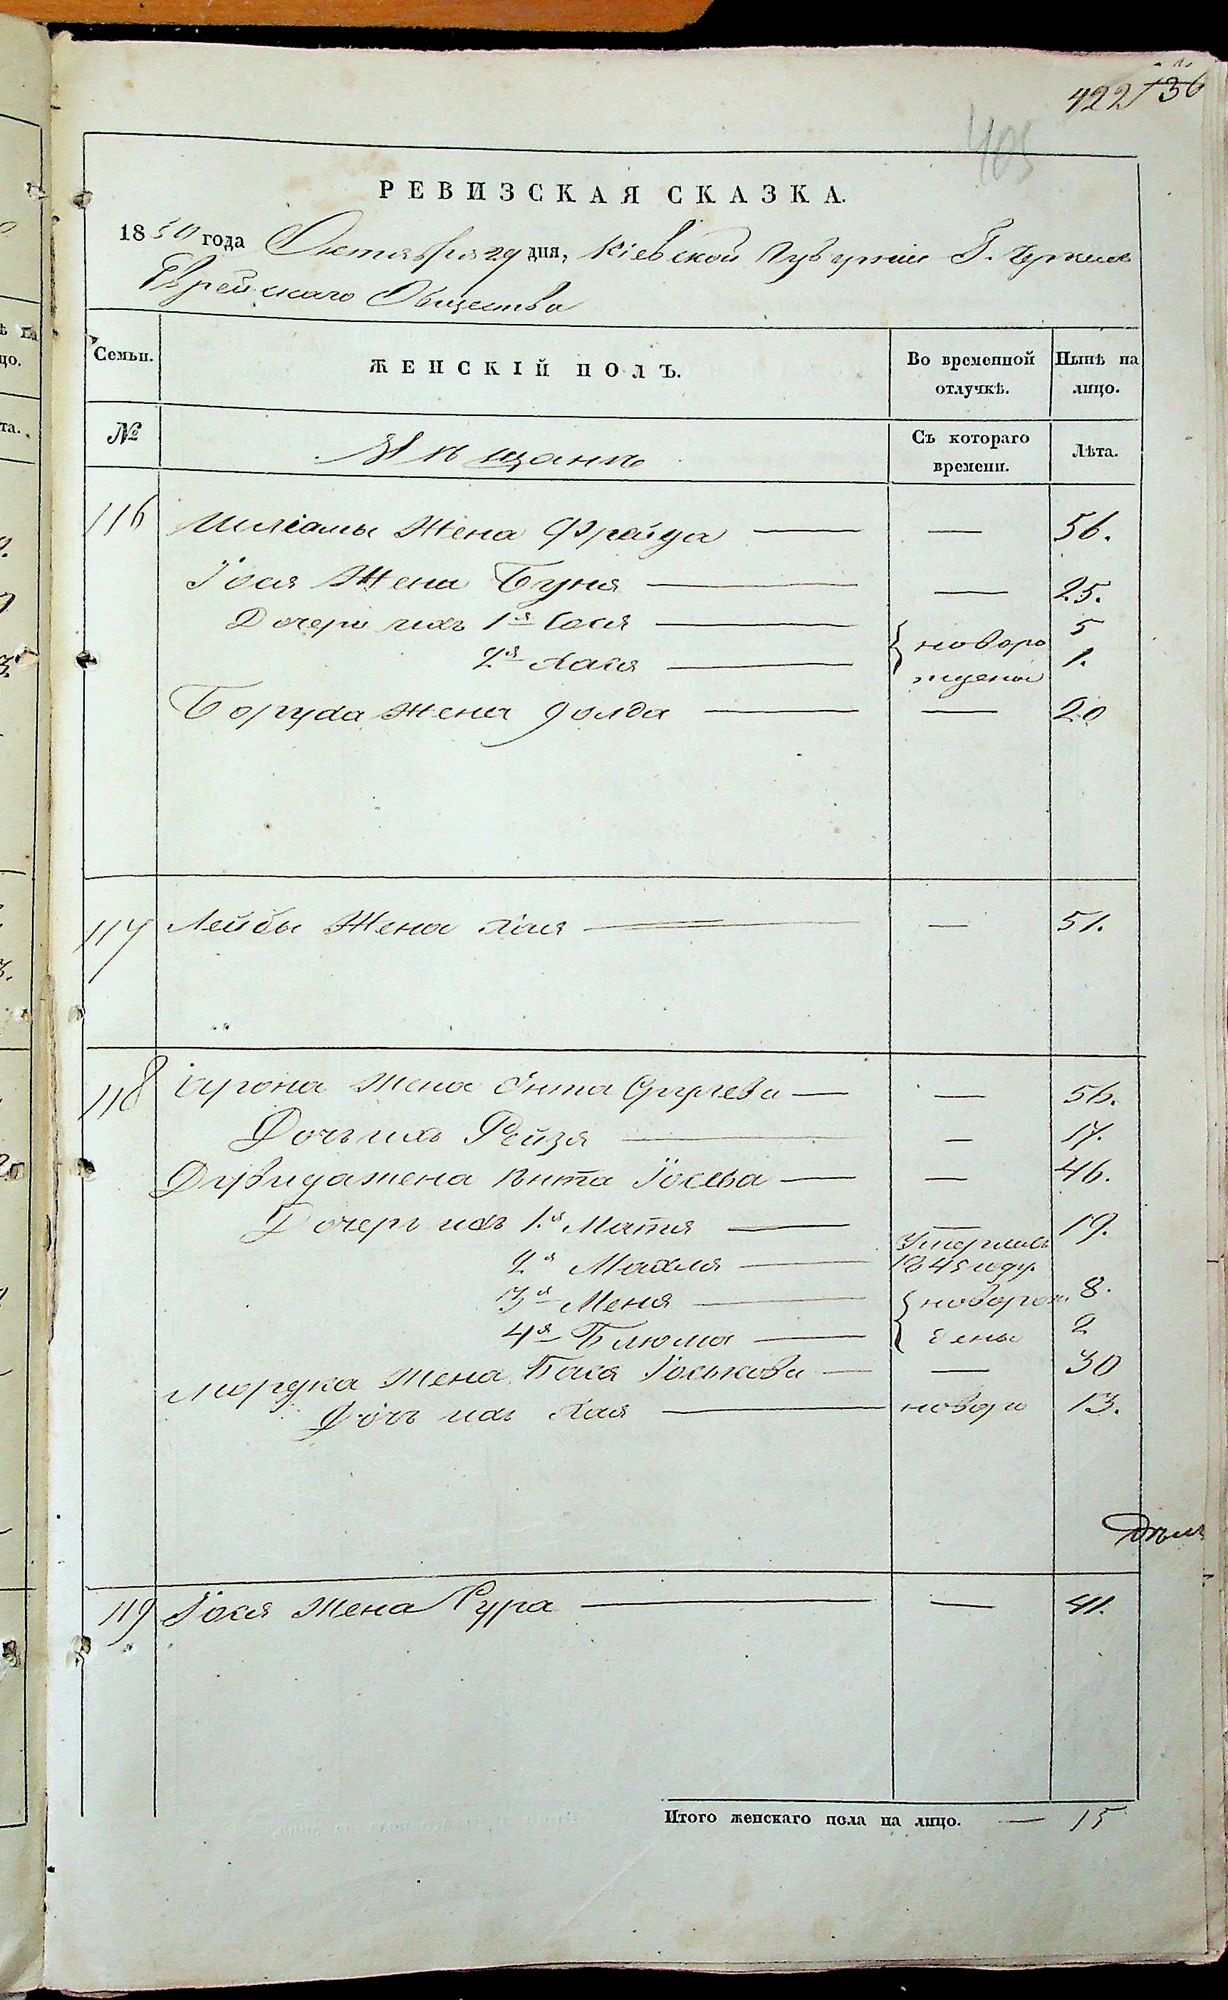 422
405
РЕВИЗСКАЯ СКАЗКА.
1850 года Октября 29 дня, Кіевской Губерніи Г. Черкасъ
Еврейскаго Общества
Семьи. ЖЕНСКІЙ ПОЛЪ. Во временной отлучкѣ. Нынѣ на лицо.
№ Мѣщанъ Съ котораго времени. Лѣта.
116 жена Фрейда — — 56.
Іося жена Буня — — 25.
Дочери ихъ 1я Сося — новоро 5
2я Хася — жденыі 1.
Боруха жена Голда — — 20
117 Лейбы жена Хая — — 51.
118 Арона жена Энта — — 56.
Дочь ихъ Рейзя — — 17.
Дувида жена Іосева — — 46.
Дочери ихъ 1я Матя — — 19.
2я Махля — Умерла въ 1845 году.
3я Меня — новорож 8.
4я Блюма — дены 2
Мордка жена Бася Іоськова — — 30
Дочь ихъ Хая — новоро 13.
119 Іося жена Сура — — 41.
Итого женскаго пола на лицо. — 15